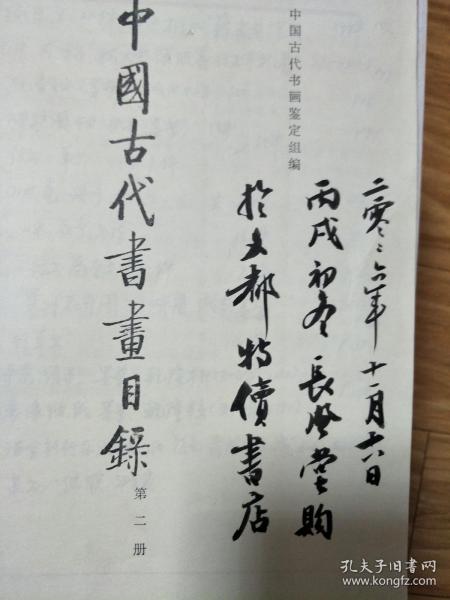 二零〻六年十一月十六日
丙戌初冬長風堂購
於文都特價書店
中国古代书画鉴定组编
中國古代書畫目錄
第二册
孔夫子旧书网
www.kongfz.com